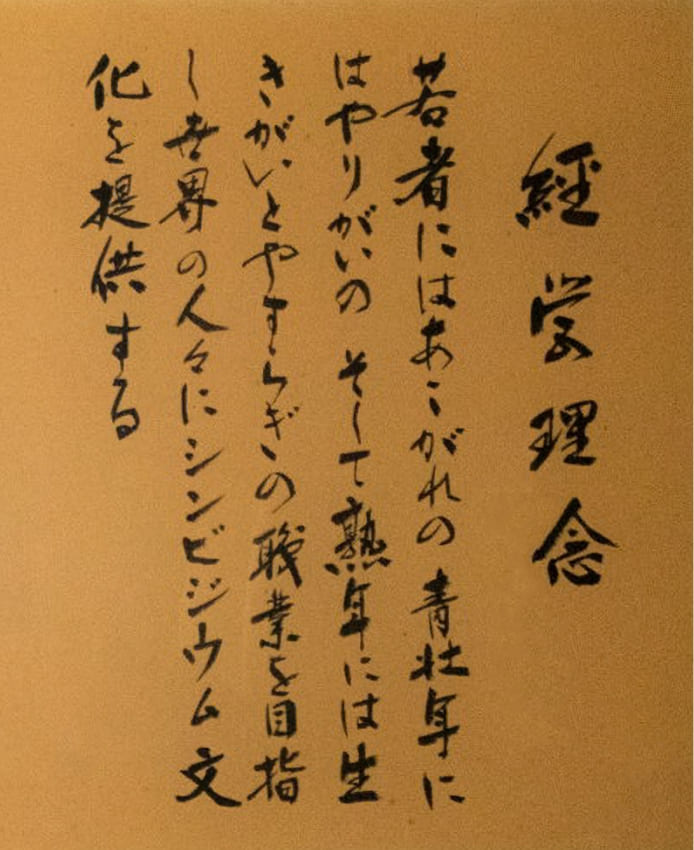 經学理念
若者にはあこがれの 青壮年に
はやりがいの そして熟年には生
きがいとやすらぎの職業を目指
し世界の人々にシンビジウム文
化を提供する